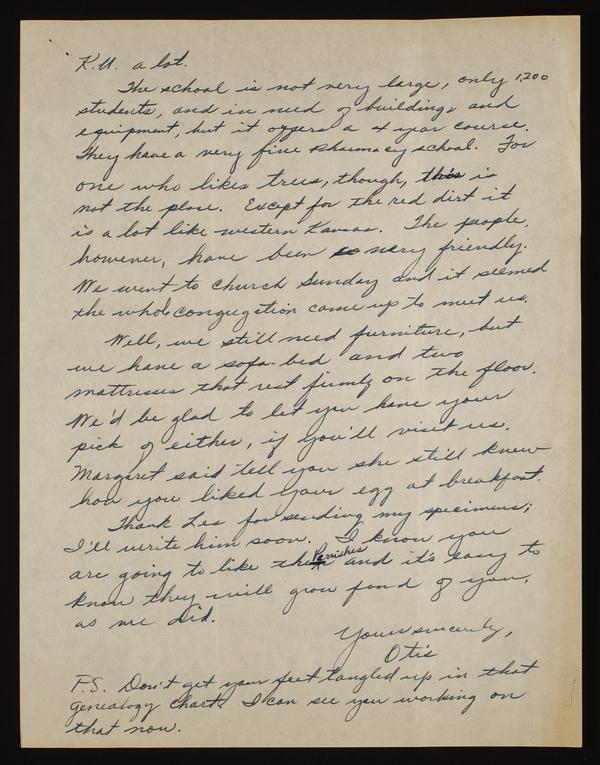 K.U. a lot.
The school is not very large, only 1,200
students, and in need of buildings and
equipment, but it offers a 4 year course.
They have a very fine Pharmacy school. For
one who likes trees, though, this is
not the place. Except for the red dirt it
is a lot like western Kansas. The people,
however, have been so very friendly.
We went to church Sunday and it seemed
the whole congregation came up to meet us.
Well, we still need furniture, but
we have a sofa-bed and two
mattresses that rest firmly on the floor.
We'd be glad to let you have your
pick of either, if you'll visit us.
Margaret said tell you she still knew
how you liked your egg at breakfast.
Thank Les for sending my specimens;
I'll write him soon. I know you
are going to like the Parrishes and it's easy to
know they will grow fond of you,
as we did.
Yours sincerely,
Otis
P.S. Don't get your feet tangled up in that
genealogy chart. I can see you working on
that now.